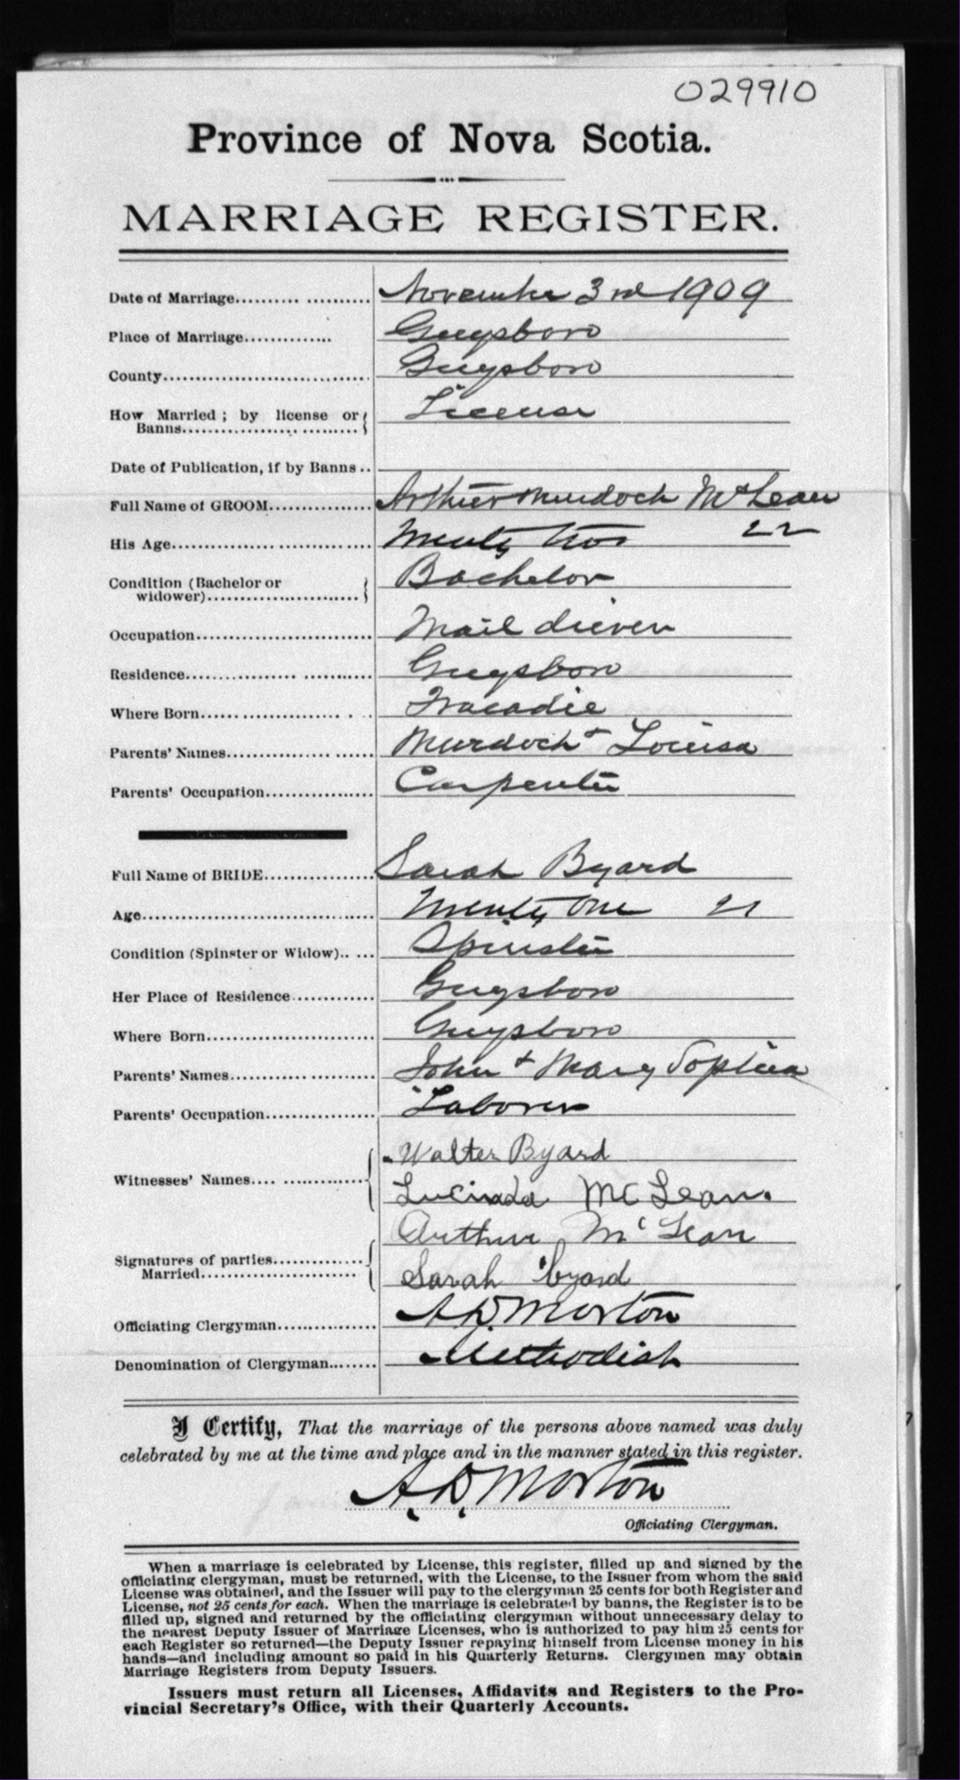 029910
Province of Nova Scotia.
MARRIAGE REGISTER.
Date of Marriage.......... ........... November 3rd 1909
Place of Marriage.............. Guysboro
County.................................. Guysboro
How Married ; by license or License
Banns.................. .........
Date of Publication, if by Banns ..
Full Name of GROOM................ Arthur Murdoch McLean
His Age................................. Twenty two 22
Condition (Bachelor or Bachelor
widower)..........................
Occupation............................. Mail driver
Residence................ ........... Guysboro
Where Born...... .............. . .. Tracadie
Parents' Names................ ...... Murdoch + Louisa
Parents' Occupation................. Carpenter
Full Name of BRIDE................ Sarah Byard
Age...................................... Twenty One 21
Condition (Spinster or Widow).. ... Spinster
Her Place of Residence............. Guysboro
Where Born........................... Guysboro
Parents' Names....................... John + Mary Sophia
Parents' Occupation................. Laborer
Walter Byard
Witnesses' Names.... ...............
Lucinda McLean.
Arthur McLean
Signatures of parties...............
Married.......................... Sarah Byard
Officiating Clergyman................ A.D. Morton
Denomination of Clergyman........ Methodist
I Certify, That the marriage of the persons above named was duly
celebrated by me at the time and place and in the manner stated in this register.
A.D. Morton
Officiating Clergyman.
When a marriage is celebrated by License, this register, filled up and signed by the
officiating clergyman, must be returned, with the License, to the Issuer from whom the said
License was obtained, and the Issuer will pay to the clergyman 25 cents for both Register and
License, not 25 cents for each. When the marriage is celebrated by banns, the Register is to be
filled up, signed and returned by the officiating clergyman without unnecessary delay to
the nearest Deputy Issuer of Marriage Licenses, who is authorized to pay him 25 cents for
each Register so returned—the Deputy Issuer repaying himself from License money in his
hands—and including amount so paid in his Quarterly Returns. Clergymen may obtain
Marriage Registers from Deputy Issuers.
Issuers must return all Licenses, Affidavits and Registers to the Pro-
vincial Secretary's Office, with their Quarterly Accounts.